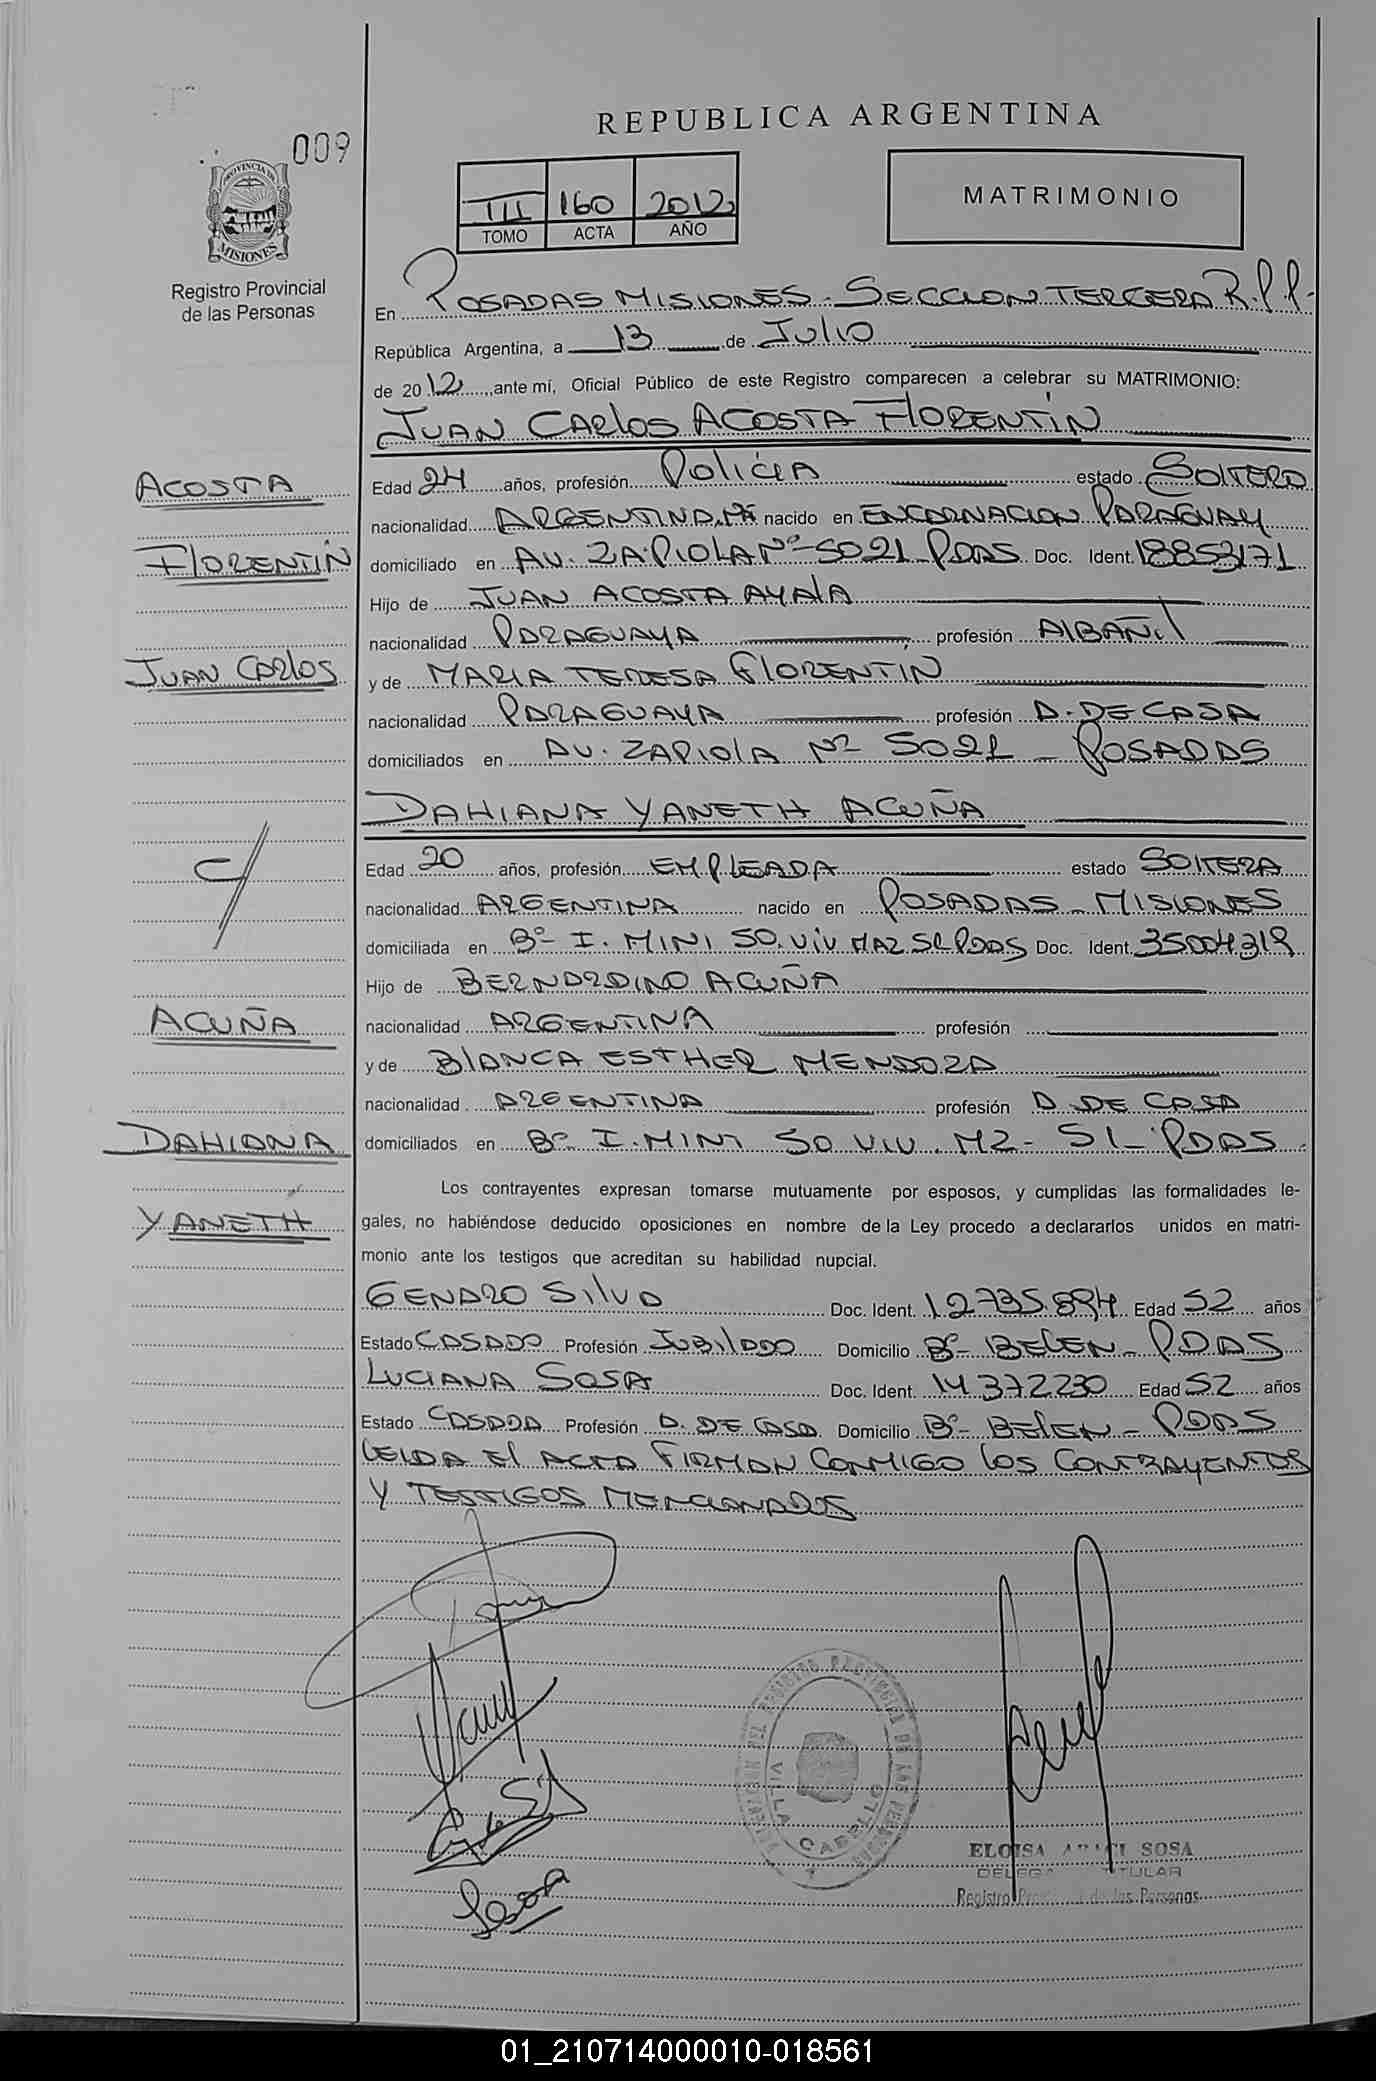 009
PROVINCIA DE
MISIONES
Registro Provincial
de las Personas
REPUBLICA ARGENTINA
III 160 2012
TOMO ACTA AÑO
MATRIMONIO
En POSADAS MISIONES - SECCION TERCERA R.P.P.-
República Argentina, a 13 de Julio
de 2012, ante mí, Oficial Público de este Registro comparecen a celebrar su MATRIMONIO:
JUAN CARLOS ACOSTA FLORENTÍN
ACOSTA
FLORENTÍN
JUAN CARLOS
Edad 24 años, profesión POLICIA estado SOLTERO
nacionalidad ARGENTINA nacido en ENCARNACION PARAGUAY
domiciliado en AV. ZAPIOLA Nº 5021 PDAS Doc. Ident. 18853171
Hijo de JUAN ACOSTA AYALA
nacionalidad PARAGUAYA profesión ALBAÑIL
y de MARIA TERESA FLORENTIN
nacionalidad PARAGUAYA profesión D. DE CASA
domiciliados en AV. ZAPIOLA Nº 5021 - POSADAS
DAHIANA YANETH ACUÑA
C/
ACUÑA
DAHIANA
YANETH
Edad 20 años, profesión EMPLEADA estado SOLTERA
nacionalidad ARGENTINA nacido en POSADAS - MISIONES
domiciliada en Bº I. MINI 50 VIV PDAS Doc. Ident. 35004319
Hijo de BERNARDINO ACUÑA
nacionalidad ARGENTINA profesión
y de BLANCA ESTHER MENDOZA
nacionalidad ARGENTINA profesión D. DE CASA
domiciliados en Bº I. MINI 50 VIV. MZ - S1 - PDAS
Los contrayentes expresan tomarse mutuamente por esposos, y cumplidas las formalidades le-
gales, no habiéndose deducido oposiciones en nombre de la Ley procedo a declararlos unidos en matri-
monio ante los testigos que acreditan su habilidad nupcial.
GENARO SILVA Doc. Ident. 12735.894 Edad 52 años
Estado CASADO Profesión JUBILADO Domicilio Bº BELEN - PDAS
LUCIANA SOSA Doc. Ident. 14372230 Edad 52 años
Estado CASADA Profesión D. DE CASA Domicilio Bº BELEN - PDAS
LEIDA EL ACTA FIRMAN CONMIGO LOS CONTRAYENTES
Y TESTIGOS MENCIONADOS
VILLA CABELLO
ELOISA SOSA
TITULAR
Registro de las Personas
01_210714000010-018561